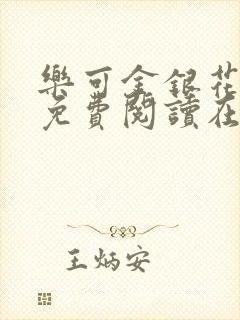 樂可金銀花
免費閱讀在
王炳安